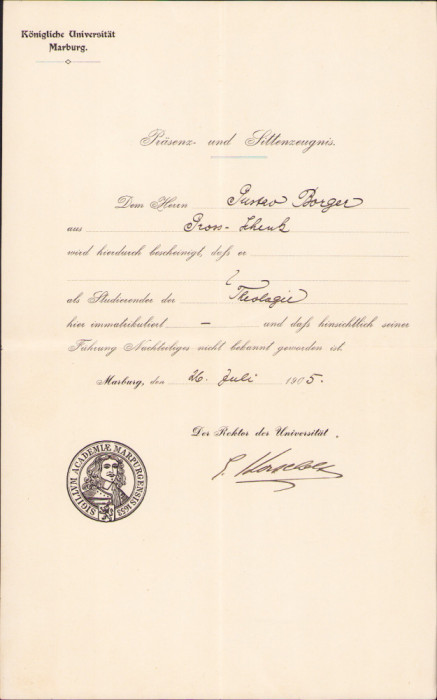 Königliche Universität
Marburg.
Präsenz- und Sittenzeugnis.
Dem Herrn Gustav Borger
aus Gross-Schenk
wird hierdurch bescheinigt, daß er
als Studierender der Theologie
hier immatrikuliert – und daß hinsichtlich seiner
Führung Nachteiliges nicht bekannt geworden ist.
Marburg, den 26. Juli 1905.
Der Rektor der Universität
SIGILLVM ACADEMIÆ MARPURGENSIS 1653